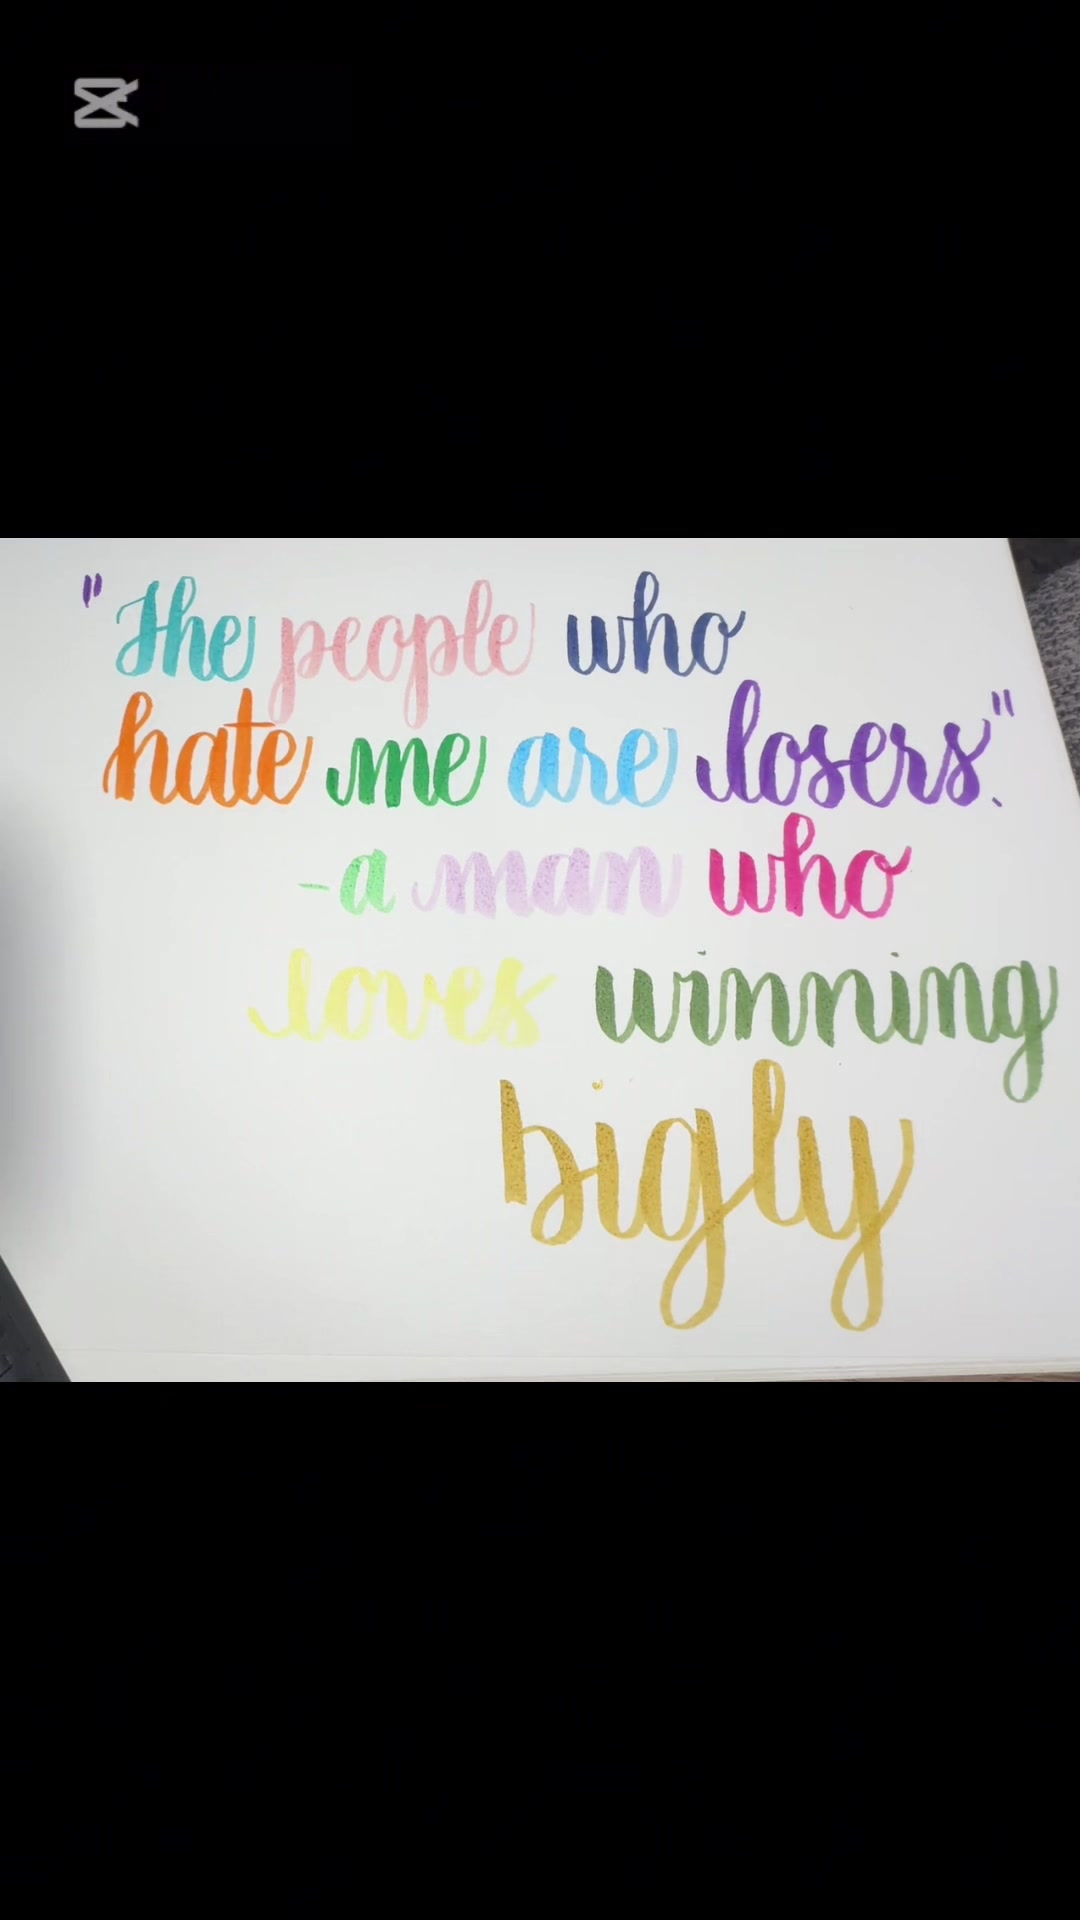 "The people who
hate me are losers."
-a man who
loves winning
bigly